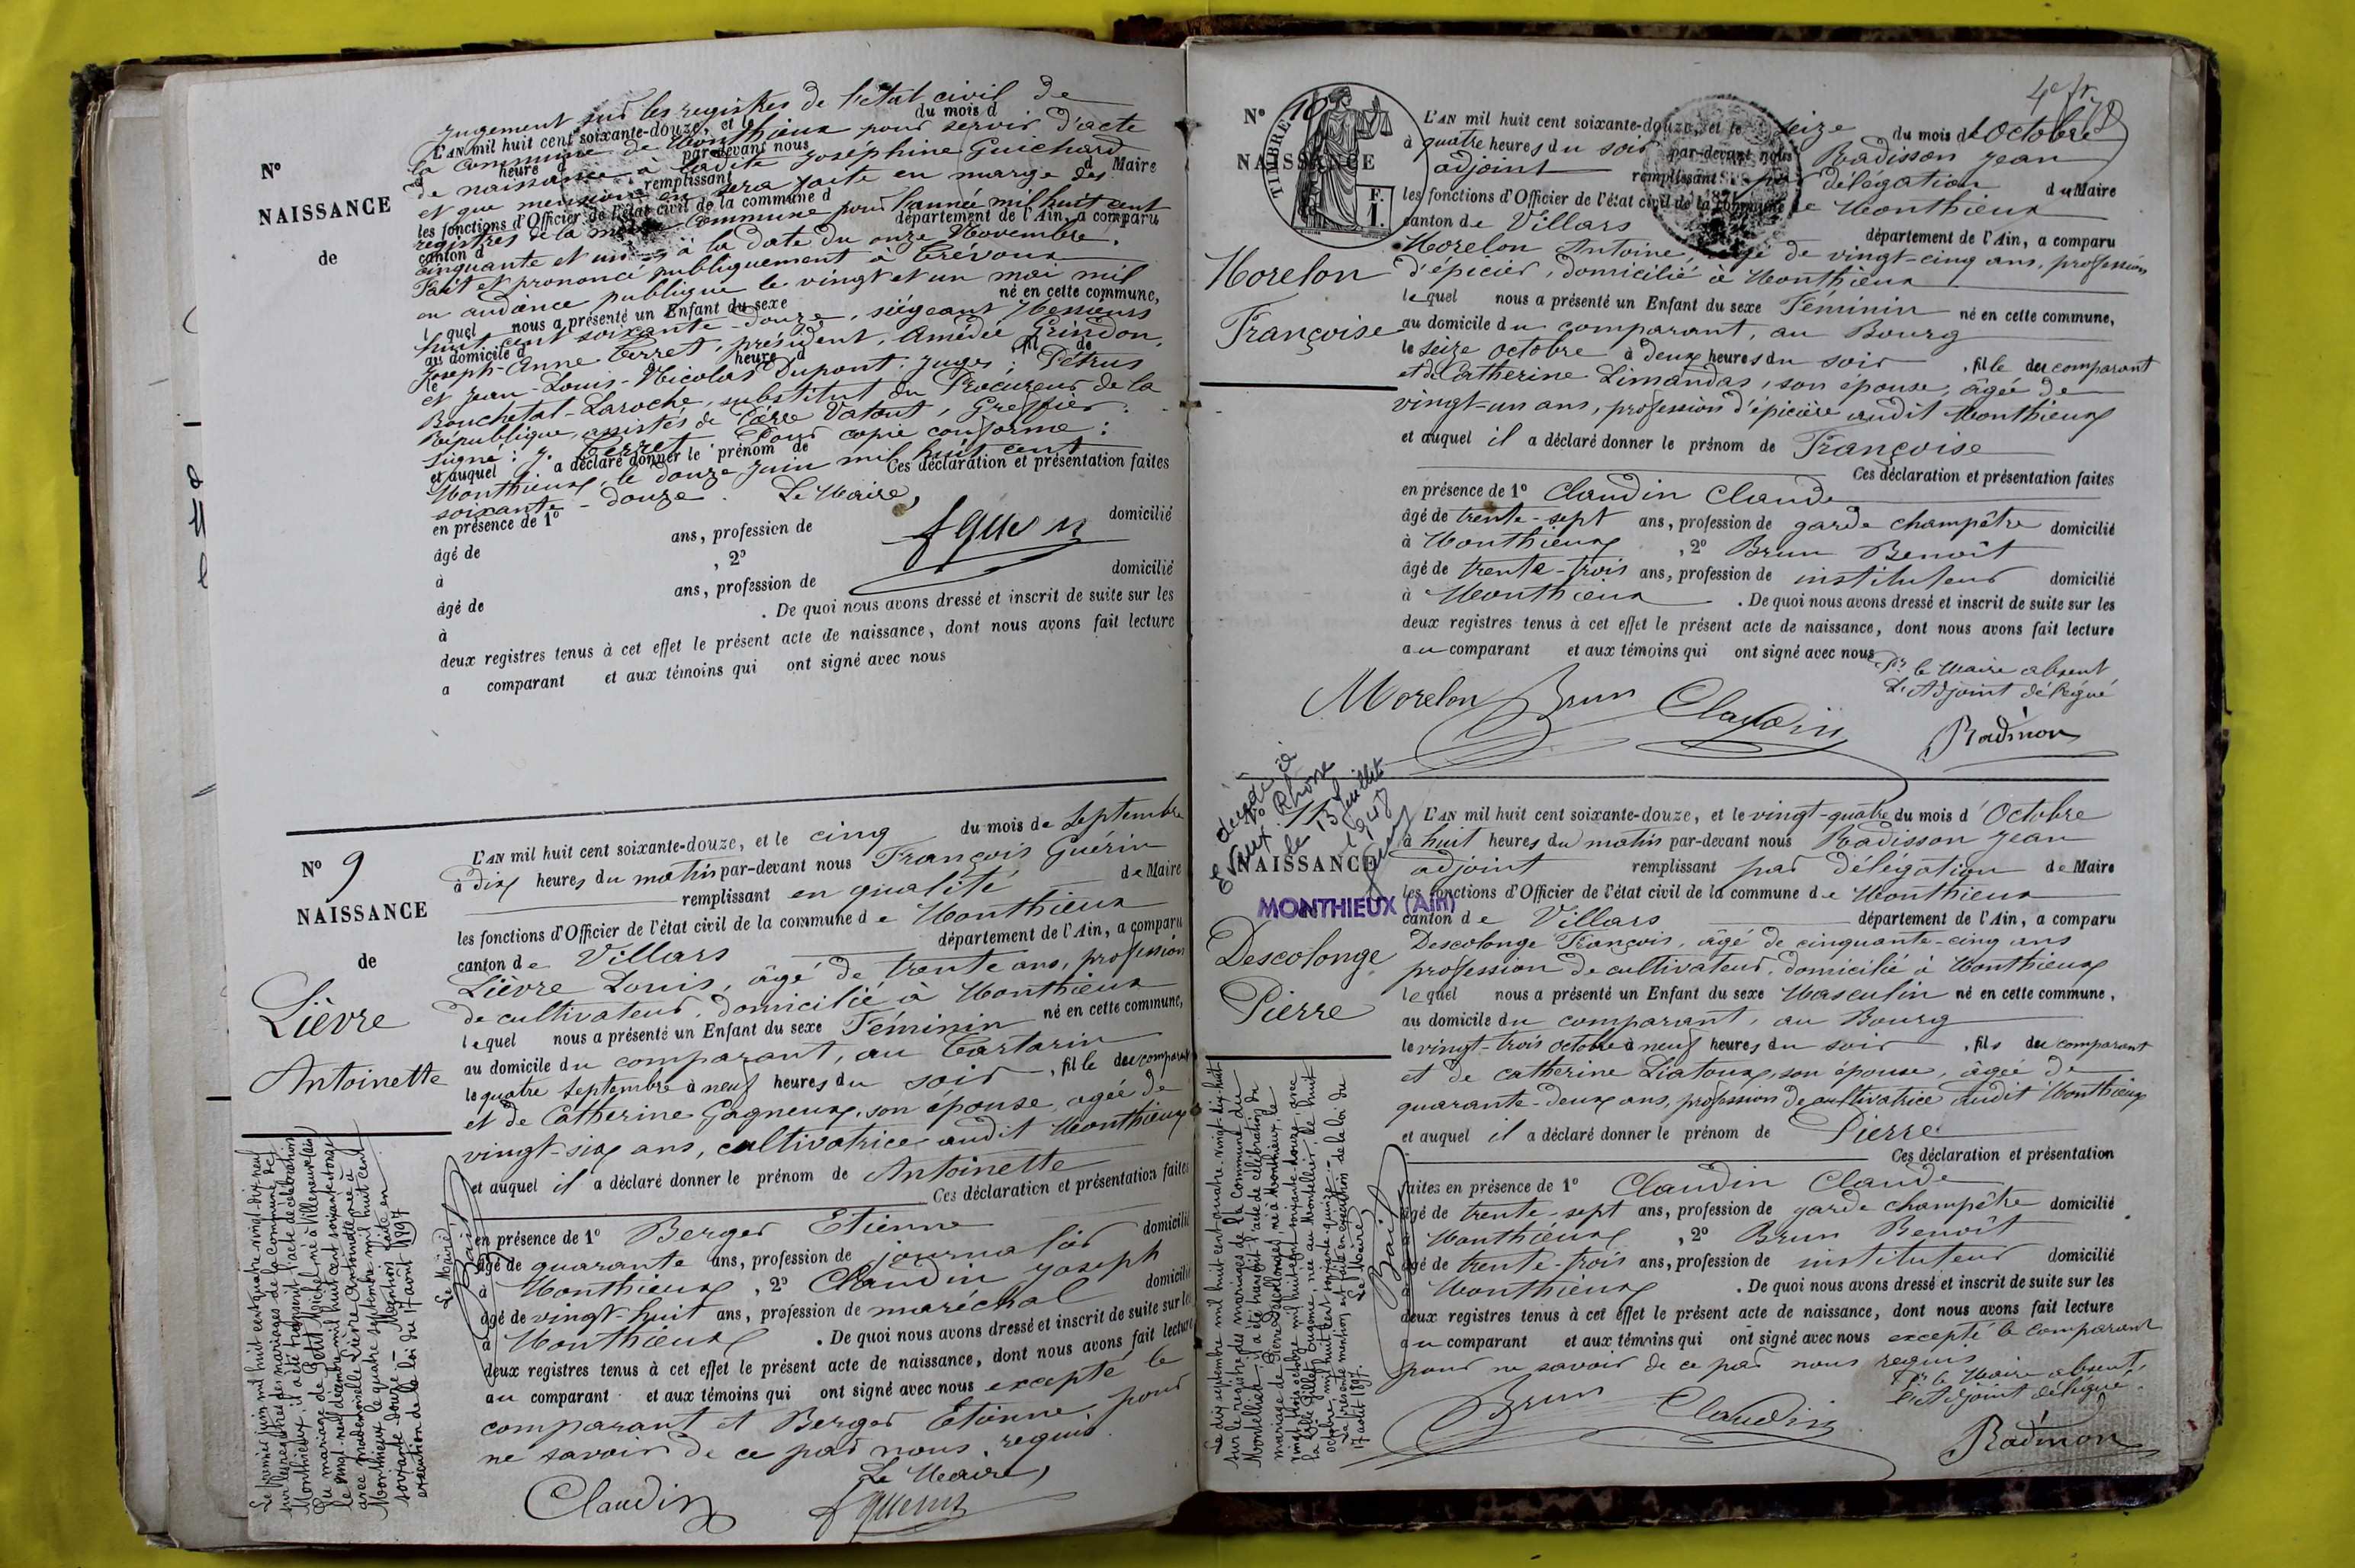 jugement sur les registres de l'état civil de
L'AN mil huit cent soixante-douze, et le du mois d
la commune de Monthieux pour servir d'acte
heure d par-devant nous
de naissance à ladite Joséphine Guichard
remplissant d Maire
et que mention en sera faite en marge des
les fonctions d'Officier de l'état civil de la commune d
registres de la même commune pour l'année mil huit cent
canton d département de l'Ain, a comparu
cinquante et un, à la date du onze Novembre.
Fait et prononcé publiquement à Trévoux
en audience publique le vingt et un mai mil
l quel nous a présenté un Enfant du sexe né en cette commune,
huit cent soixante-douze, siégeant Messieurs
au domicile d
Joseph-Anne Terret, président, Amédée Grindon,
le heure d fil de
et Jean-Louis-Nicolas Dupont, juges; Pétrus
Bouchetal-Laroche, substitut du Procureur de la
République, assistés de Pierre Vatout, Greffier.
Signé: J. Terret. Pour copie conforme:
et auquel a déclaré donner le prénom de
Monthieux, le douze juin mil huit cent
Ces déclaration et présentation faites
soixante-douze. Le Maire,
en présence de 1º
ans, profession de domicilié
âgé de
à , 2º
ans, profession de domicilié
âgé de
à . De quoi nous avons dressé et inscrit de suite sur les
deux registres tenus à cet effet le présent acte de naissance, dont nous avons fait lecture
a comparant et aux témoins qui ont signé avec nous
Nº
NAISSANCE
de
Nº 9
NAISSANCE
de
Lièvre
Antoinette
L'AN mil huit cent soixante-douze, et le cinq du mois de Septembre
à dix heures du matin par-devant nous François Guérin
remplissant en qualité de Maire
les fonctions d'Officier de l'état civil de la commune de Monthieux
canton de Villars département de l'Ain, a comparu
Lièvre Louis, âgé de trente ans, profession
de cultivateur, domicilié à Monthieux
lequel nous a présenté un Enfant du sexe Féminin né en cette commune,
au domicile du comparant, au Tartarin
le quatre Septembre à neuf heures du soir, fille du comparant
et de Catherine Gagneux, son épouse, agée de
vingt-six ans, cultivatrice audit Monthieux
et auquel il a déclaré donner le prénom de Antoinette
Ces déclaration et présentation faites
en présence de 1º Berger Etienne
âgé de quarante ans, profession de journalier domicilié
à Monthieux, 2º Claudin Joseph
âgé de vingt-huit ans, profession de maréchal domicilié
à Monthieux . De quoi nous avons dressé et inscrit de suite sur les
deux registres tenus à cet effet le présent acte de naissance, dont nous avons fait lecture
au comparant et aux témoins qui ont signé avec nous excepté le
comparant et Berger Etienne, pour
ne savoir de ce par nous requis.
Le Maire,
Claudin
Le premier juin mil huit cent quatre-vingt-dix-neuf
sur les registres des mariages de la commune de
Monthieux, il a été transcrit l'acte de célébration
Du mariage de Petit Michel, né à Villeneuve (Ain)
le vingt-neuf décembre mil huit cent soixante et onze
avec mademoiselle Lièvre Antoinette, née à
Monthieux le quatre septembre mil huit cent
soixante-douze. Mention faite en
exécution de la loi du 17 août 1897
Le Maire,
4e fr
Nº 10
TIMBRE
F.
1.
NAISSANCE
de
Morelon
Françoise
L'AN mil huit cent soixante-douze, et le seize du mois d'Octobre
à quatre heures du soir par-devant nous Radisson Jean
adjoint remplissant par délégation du Maire
les fonctions d'Officier de l'état civil de la commune de Monthieux
canton de Villars département de l'Ain, a comparu
Morelon Antoine, âgé de vingt-cinq ans, profession
d'épicier, domicilié à Monthieux
lequel nous a présenté un Enfant du sexe Féminin né en cette commune,
au domicile du comparant, au Bourg
le seize octobre à deux heures du soir, fille du comparant
et de Catherine Limandas, son épouse, âgée de
vingt-un ans, profession d'épicière audit Monthieux
et auquel il a déclaré donner le prénom de Françoise
Ces déclaration et présentation faites
en présence de 1º Claudin Claude
âgé de trente-sept ans, profession de garde champêtre domicilié
à Monthieux, 2º Brun Benoît
âgé de trente-trois ans, profession de instituteur domicilié
à Monthieux . De quoi nous avons dressé et inscrit de suite sur les
deux registres tenus à cet effet le présent acte de naissance, dont nous avons fait lecture
au comparant et aux témoins qui ont signé avec nous
Pr le Maire absent
L'Adjoint délégué
Morelon Brun Claudin Radisson
décédé à
Rhône
le 13 juillet
1948
Nº 11
NAISSANCE
MONTHIEUX (Ain)
Descolonge
Pierre
L'AN mil huit cent soixante-douze, et le vingt-quatre du mois d'Octobre
à huit heures du matin par-devant nous Radisson Jean
adjoint remplissant par délégation de Maire
les fonctions d'Officier de l'état civil de la commune de Monthieux
canton de Villars département de l'Ain, a comparu
Descolonge François, âgé de cinquante-cinq ans
profession de cultivateur, domicilié à Monthieux
lequel nous a présenté un Enfant du sexe Masculin né en cette commune,
au domicile du comparant, au Bourg
le vingt-trois octobre à neuf heures du soir, fils du comparant
et de Catherine Liatoux, son épouse, âgée de
quarante-deux ans, profession de cultivatrice audit Monthieux
et auquel il a déclaré donner le prénom de Pierre
Ces déclaration et présentation
faites en présence de 1º Claudin Claude
âgé de trente-sept ans, profession de garde champêtre domicilié
à Monthieux, 2º Brun Benoît
âgé de trente-trois ans, profession de instituteur domicilié
à Monthieux . De quoi nous avons dressé et inscrit de suite sur les
deux registres tenus à cet effet le présent acte de naissance, dont nous avons fait lecture
au comparant et aux témoins qui ont signé avec nous excepté le comparant
pour ne savoir de ce par nous requis.
Pr le Maire absent,
L'Adjoint délégué
Brun Claudin Radisson
Le dix septembre mil huit cent quatre-vingt-dix-huit
sur le registre des mariages de la Commune du
Montellier, il a été transcrit l'acte de célébration du
mariage de Pierre Descolonge, né à Monthieux, le
vingt-trois octobre mil huit cent soixante-douze, avec
la Delle Gillet Eugénie, née au Montellier, le huit
octobre mil huit cent soixante-quinze.
La présente mention est faite en exécution de la loi du
17 août 1897. Le Maire,